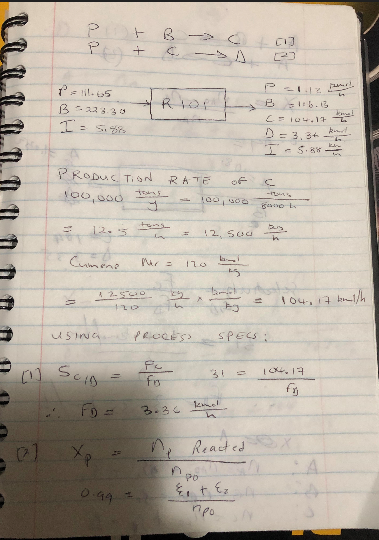 P + B → C [1]
P + C → D [2]
P = 111.65
B = 223.30
I = 5.88
R101
P = 1.12 kmol/h
B = 116.13
C = 104.17 kmol/h
D = 3.36 kmol/h
I = 5.88 km/h
PRODUCTION RATE OF C
100,000 tons/y = 100,000 tons/8000 h
= 12.5 tons/h = 12,500 kg/h
Cumene Mr = 120 kmol/kg
= 12500/120 kg/h × kmol/kg = 104.17 kmol/h
USING PROCESS SPECS:
[1] S C/D = FC/FD 31 = 104.17/FD
∴ FD = 3.36 kmol/h
[2] Xp = np Reacted/npo
0.99 = ξ1 + ξ2/npo